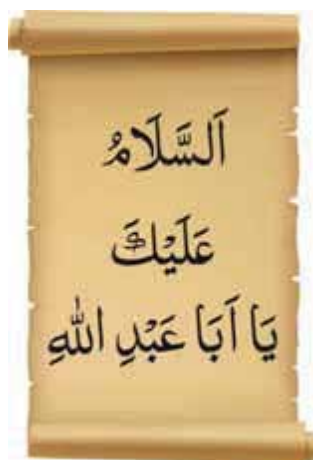 اَلسَّلَامُ
عَلَيْكَ
يَا اَبَا عَبْدِ اللهِ